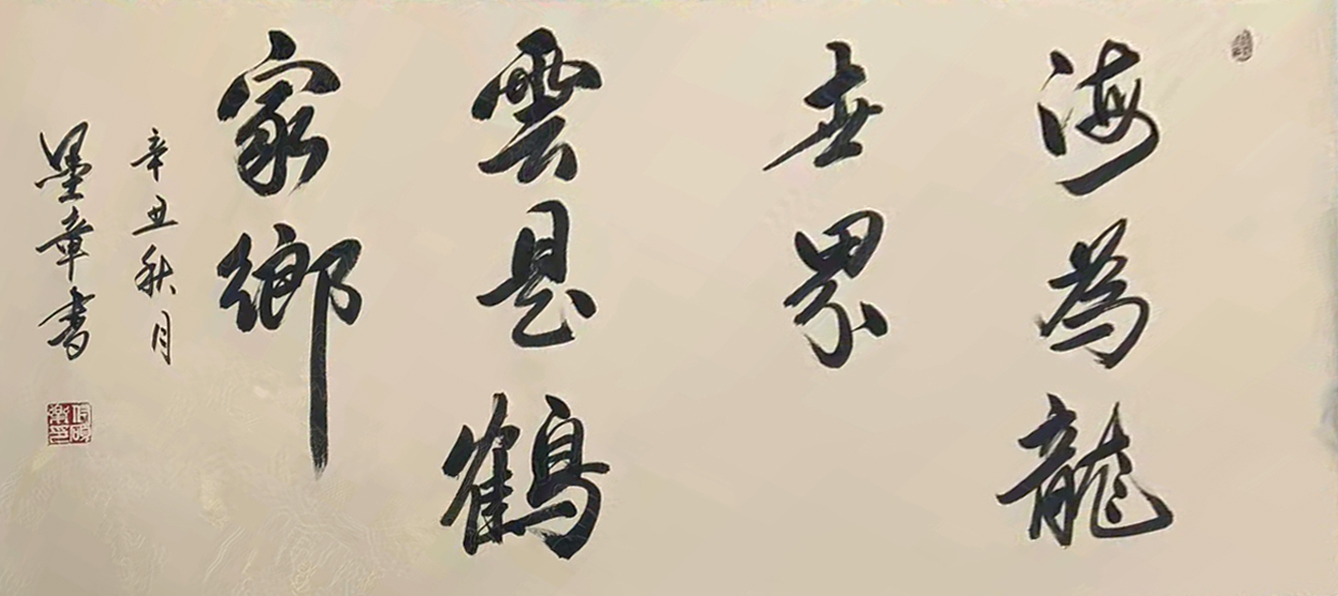 海為龍
世界
雲是鶴
家鄉
辛丑秋月
墨章書